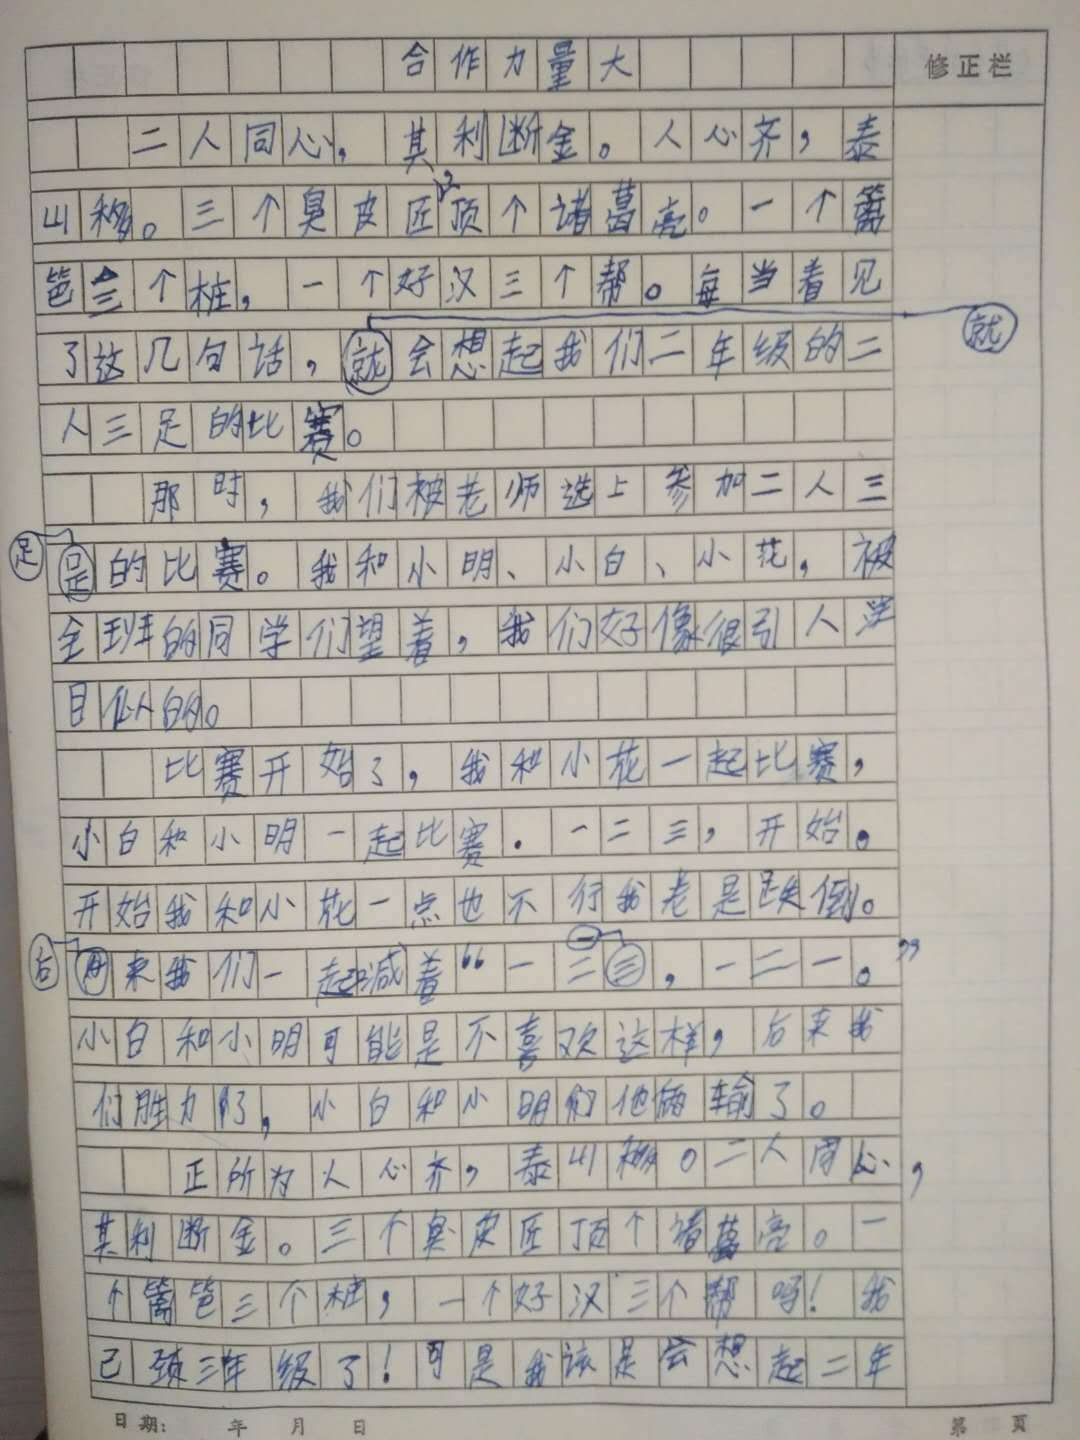 合作力量大
修正栏
二人同心，其利断金。人心齐，泰
山移。三个臭皮匠，顶个诸葛亮。一个篱
笆三个桩，一个好汉三个帮。每当看见
了这几句话，就会想起我们二年级的二
就
人三足的比赛。
那时，我们被老师选上参加二人三
足
足的比赛。我和小明、小白、小花，被
全班的同学们望着，我们好像很引人注
目似的。
比赛开始了，我和小花一起比赛，
小白和小明一起比赛．一二三，开始。
开始我和小花一点也不行我老是跌倒。
后
来我们一起喊着“一二三，一二一。”
小白和小明可能是不喜欢这样，后来我
们胜力了，小白和小明们他俩输了。
正所为人心齐，泰山移。二人同心，
其利断金。三个臭皮匠顶个诸葛亮。一
个篱笆三个桩，一个好汉三个帮吗！我
己颈三年级了！可是我该是会想起二年
日期： 年 月 日
第 页